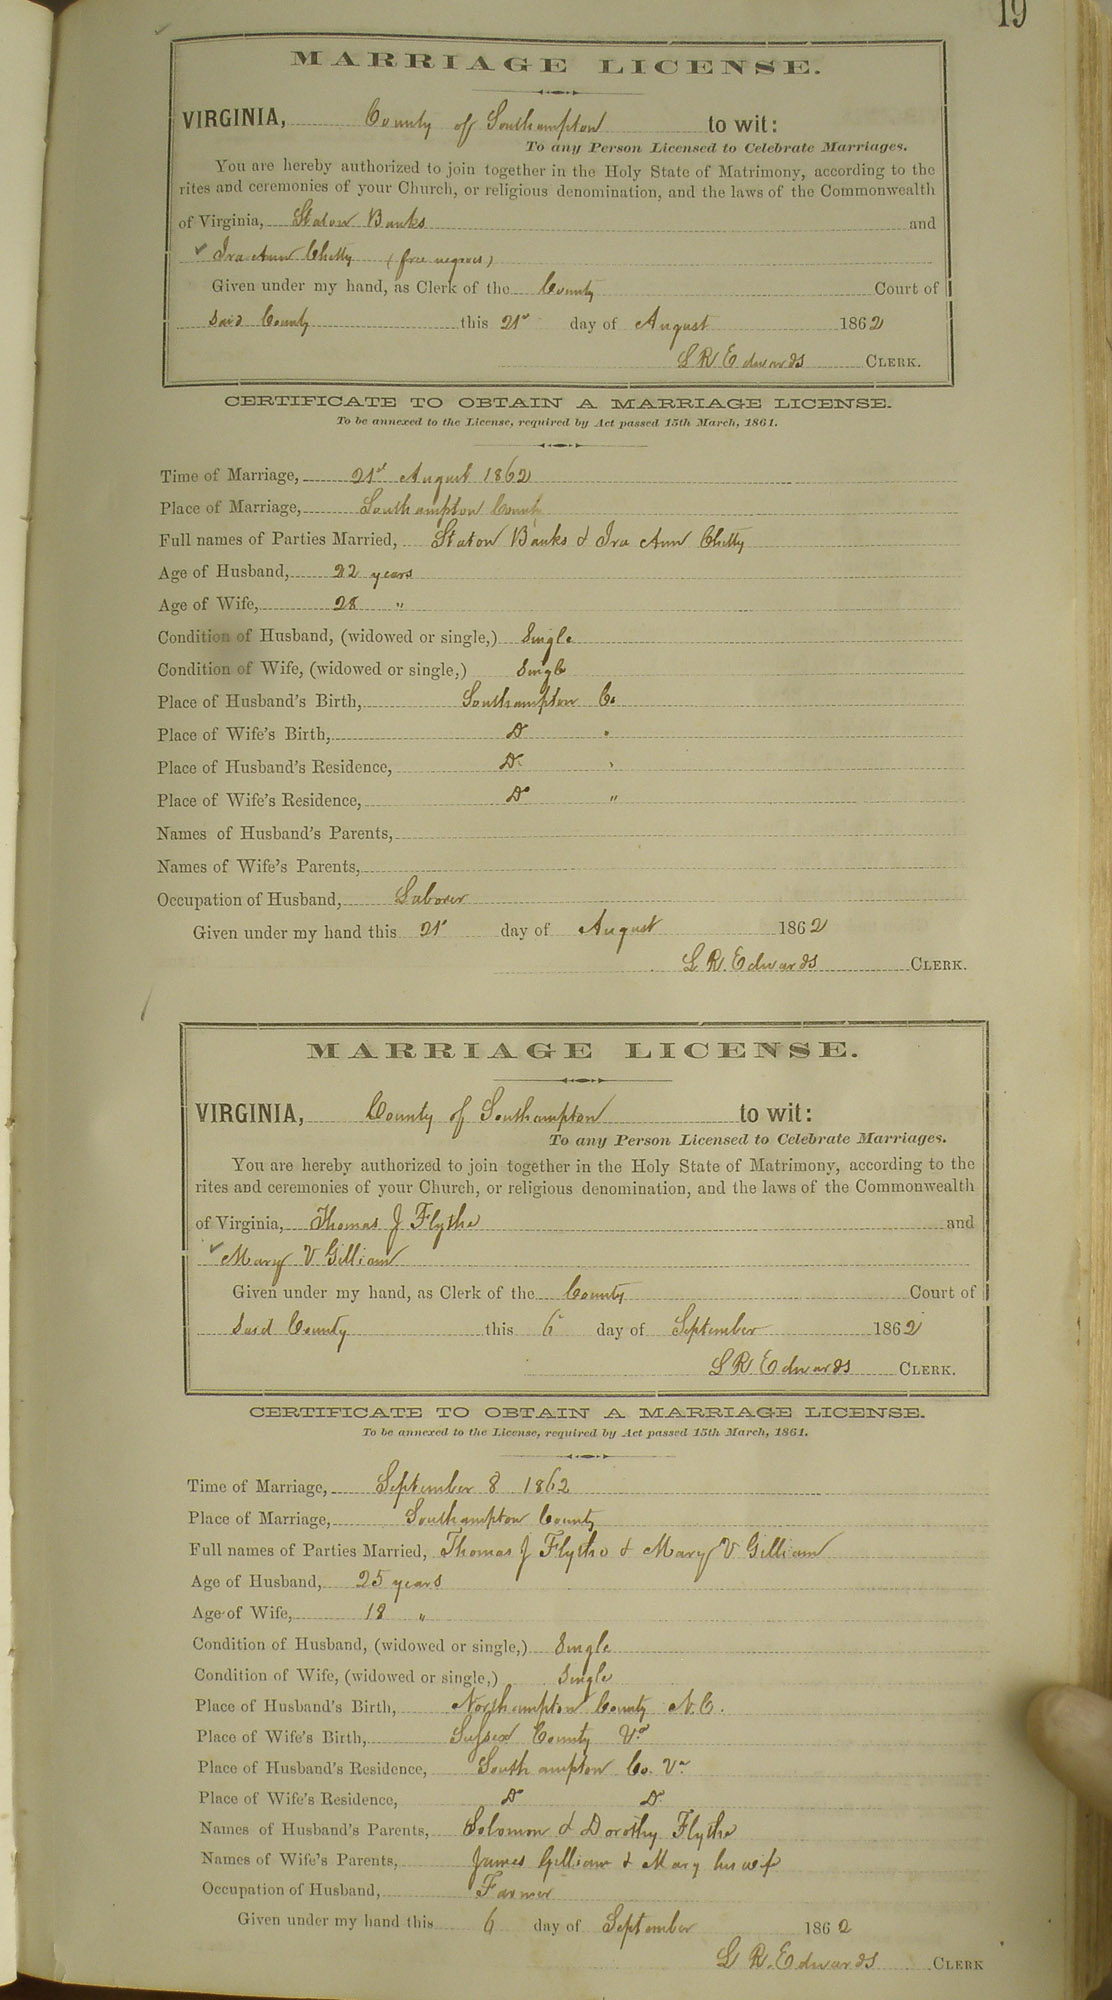 19
MARRIAGE LICENSE.
VIRGINIA, County of Southampton to wit:
To any Person Licensed to Celebrate Marriages.
You are hereby authorized to join together in the Holy State of Matrimony, according to the
rites and ceremonies of your Church, or religious denomination, and the laws of the Commonwealth
of Virginia, Staton Banks and
Ira Ann Chitty (free negroes)
Given under my hand, as Clerk of the County Court of
Said County this 21st day of August 1862
L R Edwards CLERK.
CERTIFICATE TO OBTAIN A MARRIAGE LICENSE.
To be annexed to the License, required by Act passed 15th March, 1861.
Time of Marriage, 21st August 1862
Place of Marriage, Southampton County
Full names of Parties Married, Staton Banks & Ira Ann Chitty
Age of Husband, 22 years
Age of Wife, 28 "
Condition of Husband, (widowed or single,) Single
Condition of Wife, (widowed or single,) Single
Place of Husband's Birth, Southampton Co
Place of Wife's Birth, Do "
Place of Husband's Residence, Do "
Place of Wife's Residence, Do "
Names of Husband's Parents,
Names of Wife's Parents,
Occupation of Husband, Laborer
Given under my hand this 21st day of August 1862
L R. Edwards CLERK.
MARRIAGE LICENSE.
VIRGINIA, County of Southampton to wit:
To any Person Licensed to Celebrate Marriages.
You are hereby authorized to join together in the Holy State of Matrimony, according to the
rites and ceremonies of your Church, or religious denomination, and the laws of the Commonwealth
of Virginia, Thomas J Flythe and
Mary V Gilliam
Given under my hand, as Clerk of the County Court of
Said County this 6 day of September 1862
L R Edwards CLERK.
CERTIFICATE TO OBTAIN A MARRIAGE LICENSE.
To be annexed to the License, required by Act passed 15th March, 1861.
Time of Marriage, September 8 1862
Place of Marriage, Southampton County
Full names of Parties Married, Thomas J Flythe & Mary V Gilliam
Age of Husband, 25 years
Age of Wife, 18 "
Condition of Husband, (widowed or single,) Single
Condition of Wife, (widowed or single,) Single
Place of Husband's Birth, Northampton County N.C.
Place of Wife's Birth, Sussex County Va
Place of Husband's Residence, Southampton Co. Va
Place of Wife's Residence, Do Do
Names of Husband's Parents, Solomon & Dorothy Flythe
Names of Wife's Parents, James Gilliam & Mary his wife
Occupation of Husband, Farmer
Given under my hand this 6 day of September 1862
L R. Edwards CLERK